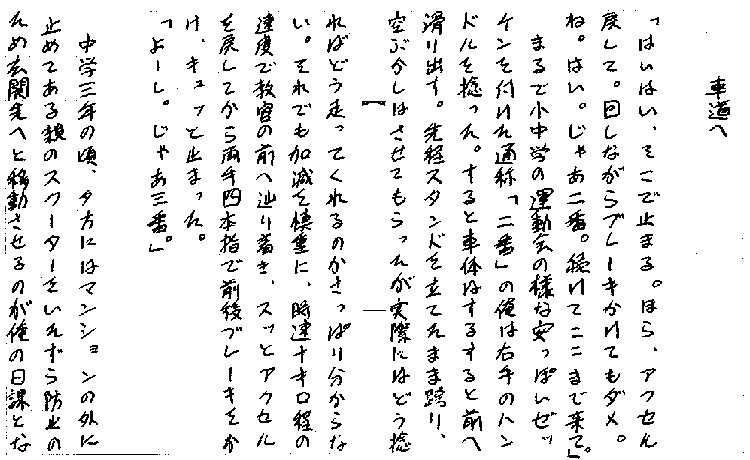 車道へ
「はいはい、そこで止まる。ほら、アクセル
戻して。回しながらブレーキかけてもダメ。
ね。はい。じゃあ二番。続けてここまで来て。」
まるで小中学の運動会の様な安っぽいゼッ
ケンを付けた通称「二番」の俺は右手のハン
ドルを捻った。すると車体はするすると前へ
滑り出す。先程スタンドを立てたまま跨り、
空ぶかしはさせてもらったが実際にはどう捻
ればどう走ってくれるのかさっぱり分からな
い。それでも加減を慎重に、時速十キロ程の
速度で教官の前へ辿り着き、スッとアクセル
を戻してから両手四本指で前後ブレーキをか
け、キュッと止まった。
「よーし。じゃあ三番。」
中学三年の頃、夕方にはマンションの外に
止めてある親のスクーターをいたずら防止の
ため玄関先へと移動させるのが俺の日課とな